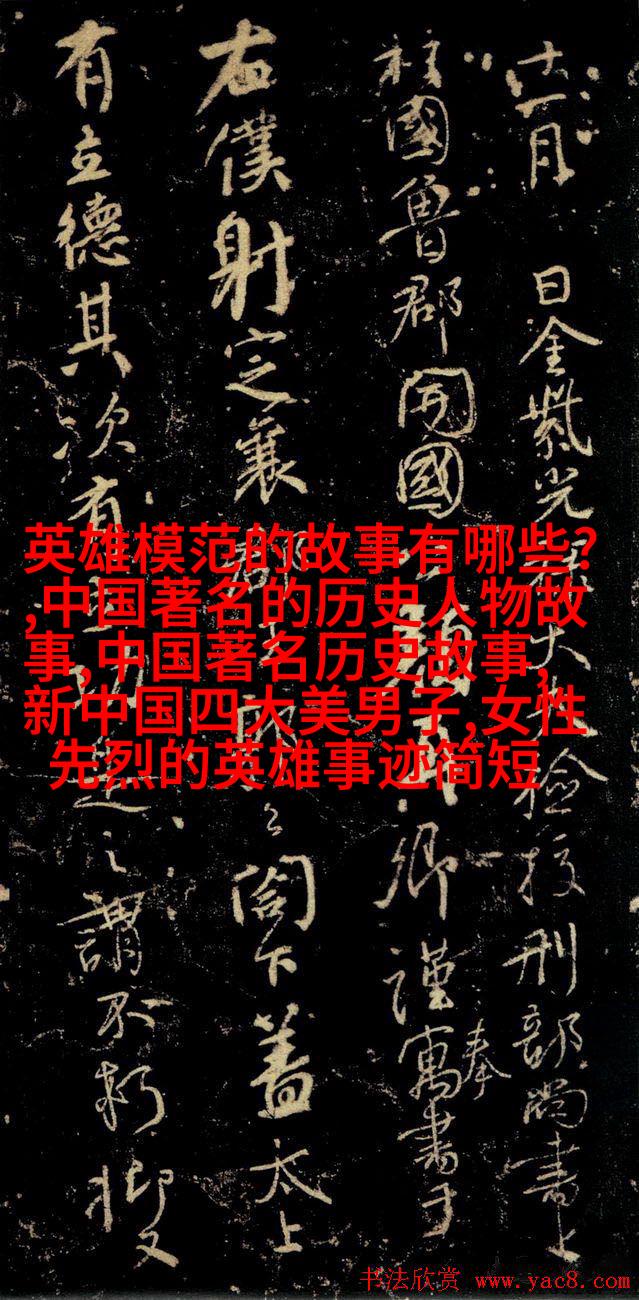 十一月 日金紫光禄大夫檢校刑部尚書上
柱國魯郡開國顏卿謹奉寓書于
右僕射定襄郡閤下蓋太上
有立德其次有功之謂不朽抑又
英雄模范的故事有哪些?
,中国著名的历史人物故
事,中国著名历史故事,
新中国四大美男子,女性
先烈的英雄事迹简短
书法欣赏 www.yac8.com